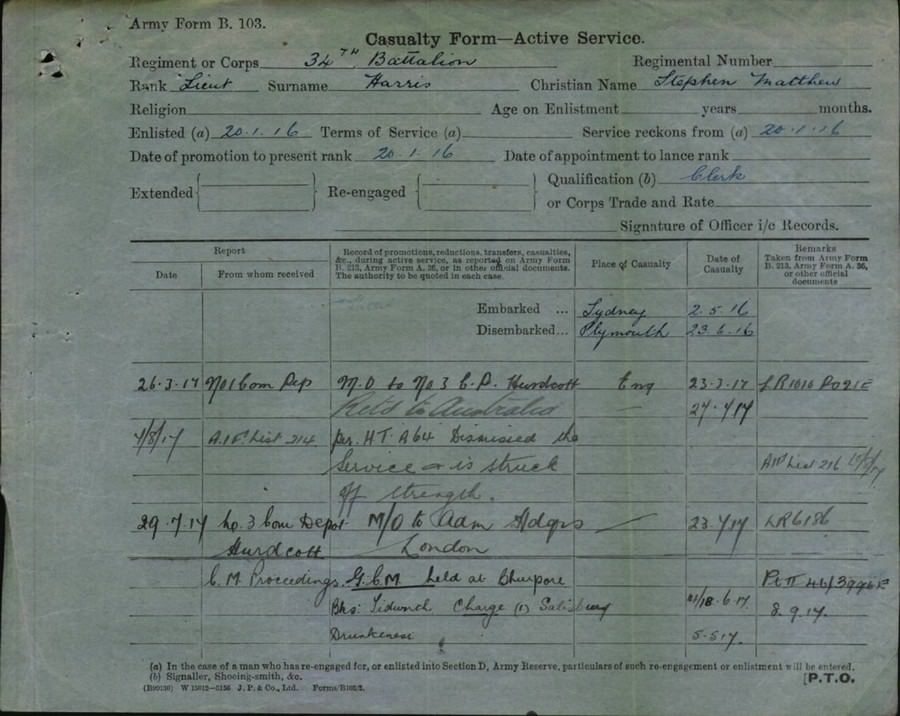 Army Form B. 103.
Casualty Form—Active Service.
Regiment or Corps 34TH Battalion Regimental Number
Rank Lieut Surname Harris Christian Name Stephen Matthew
Religion Age on Enlistment years months.
Enlisted (a) 20.1.16 Terms of Service (a) Service reckons from (a) 20.1.16
Date of promotion to present rank 20.1.16 Date of appointment to lance rank
Extended { } Re-engaged { } Qualification (b) Clerk
or Corps Trade and Rate
Signature of Officer i/c Records.
Report
Date
From whom received
Record of promotions, reductions, transfers, casualties, &c., during active service, as reported on Army Form B. 213, Army Form A. 36, or in other official documents. The authority to be quoted in each case.
Place of Casualty
Date of Casualty
Remarks
Taken from Army Form B. 213, Army Form A. 36, or other official documents
Embarked ... Sydney 2.5.16
Disembarked... Plymouth 23.6.16
26.3.17 No 1 Com Dep M.O to No 3 C.D. Hurdcott Eng 23.3.17
Retd to Australia — 27.7.17
7/8/17 A.I.F. List 214 per. H.T. A64 Dismissed the
Service & is struck AIF List 216
off strength.
29.7.17 No. 3 Com Depot M/O to Adm Hdqrs — 23.7.17 LR6186
Hurdcott London
C.M. Proceedings. G.C.M. held at Bhurpore
Bks: Tidworth Charge (1) Salisbury 8.9.17.
Drunkeness 5.5.17.
(a) In the case of a man who has re-engaged for, or enlisted into Section D, Army Reserve, particulars of such re-engagement or enlistment will be entered.
(b) Signaller, Shoeing-smith, &c.
[P.T.O.
J. P. & Co., Ltd. Forms/B103/2.